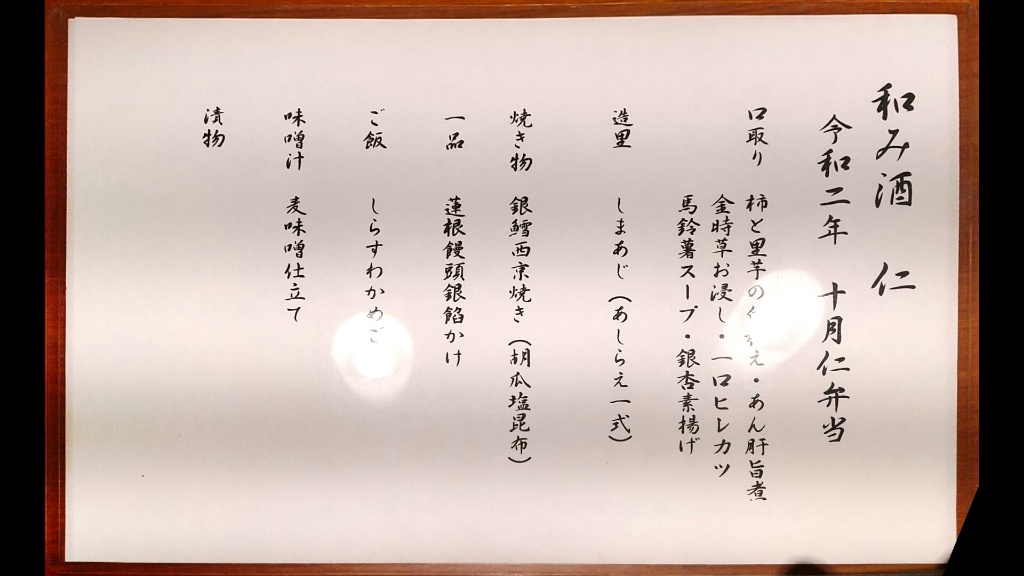 和み酒 仁
令和二年 十月仁弁当
口取り 柿と里芋の え・あん肝旨煮
金時草お浸し・一口ヒレカツ
馬鈴薯スープ・銀杏素揚げ
造里 しまあじ(あしらえ一式)
焼き物 銀鱈西京焼き(胡瓜塩昆布)
一品 蓮根饅頭銀餡かけ
ご飯 しらすわかめご
味噌汁 麦味噌仕立て
漬物